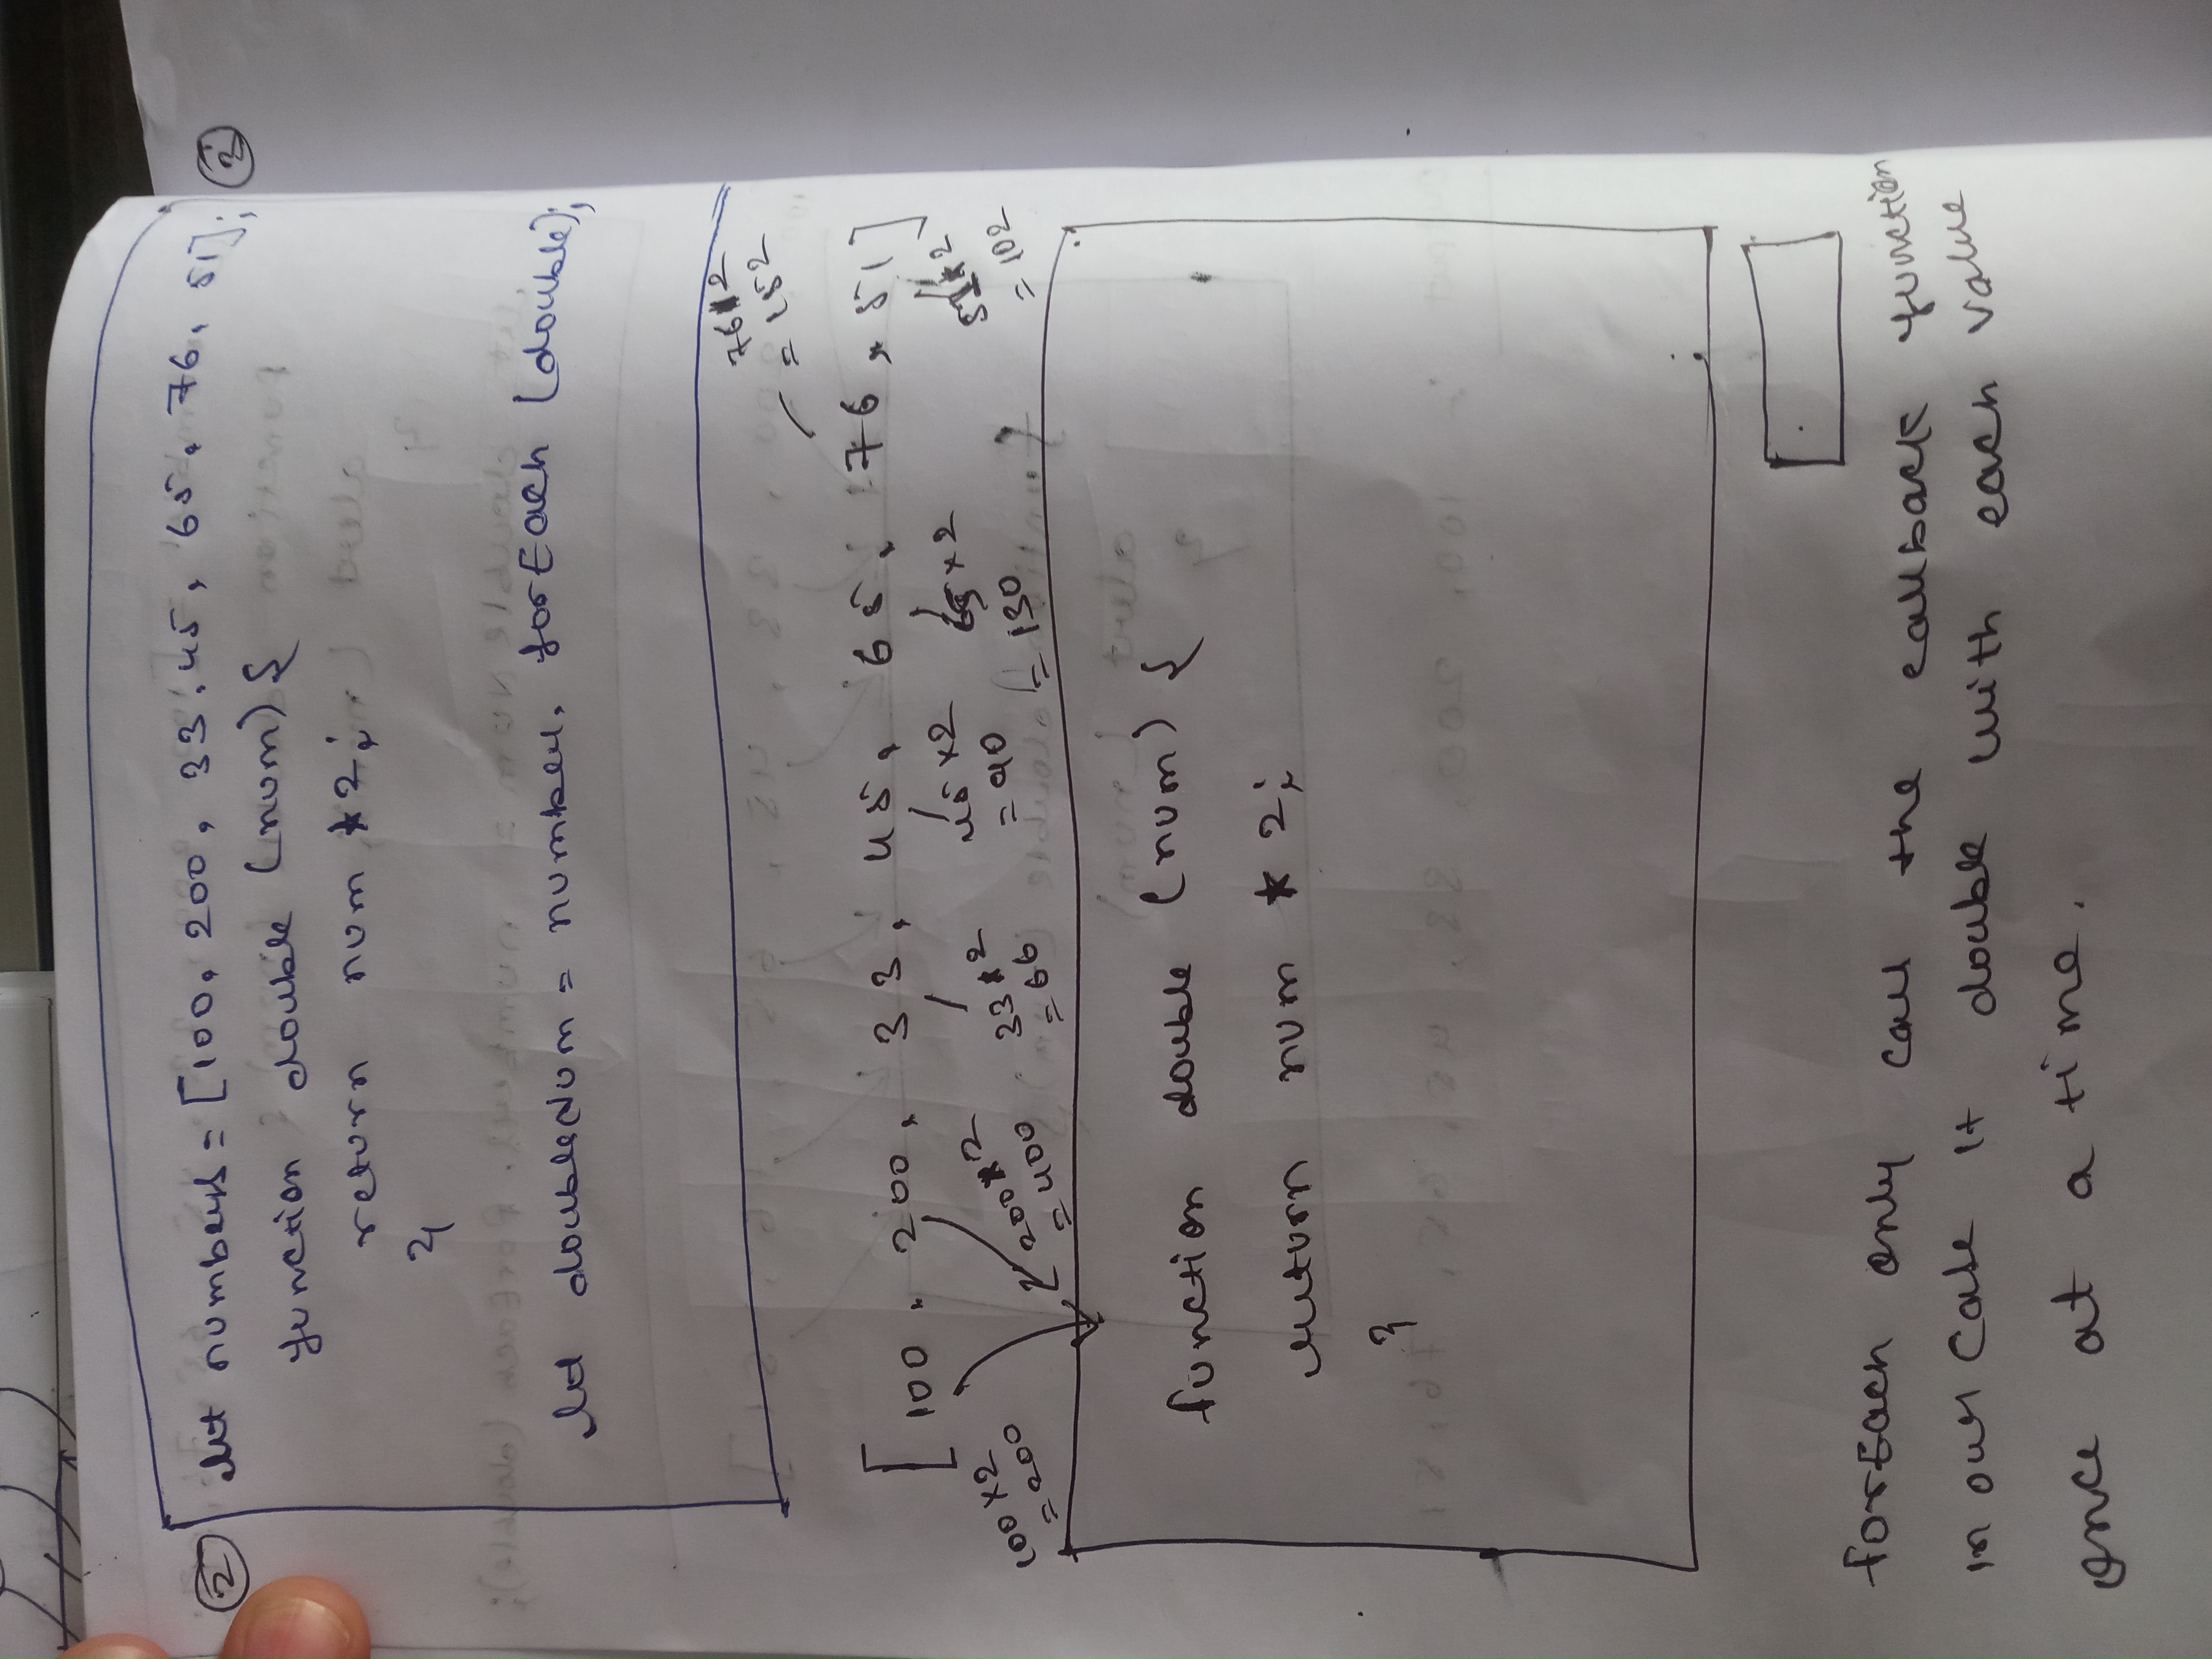 2
let numbers = [100, 200, 33, 45, 65, 76, 51];
function double (num) {
return num * 2;
}
let doubleNum = number. forEach (double);
[100, 200, 33, 45, 65, 76, 51]
76*2
= 152
100*2
= 200
200*2
= 400
33*2
= 66
45*2
= 90
65*2
= 130
51*2
= 102
function double (num) {
return num * 2;
}
forEach only call the callback function
in our case it double with each value
once at a time.